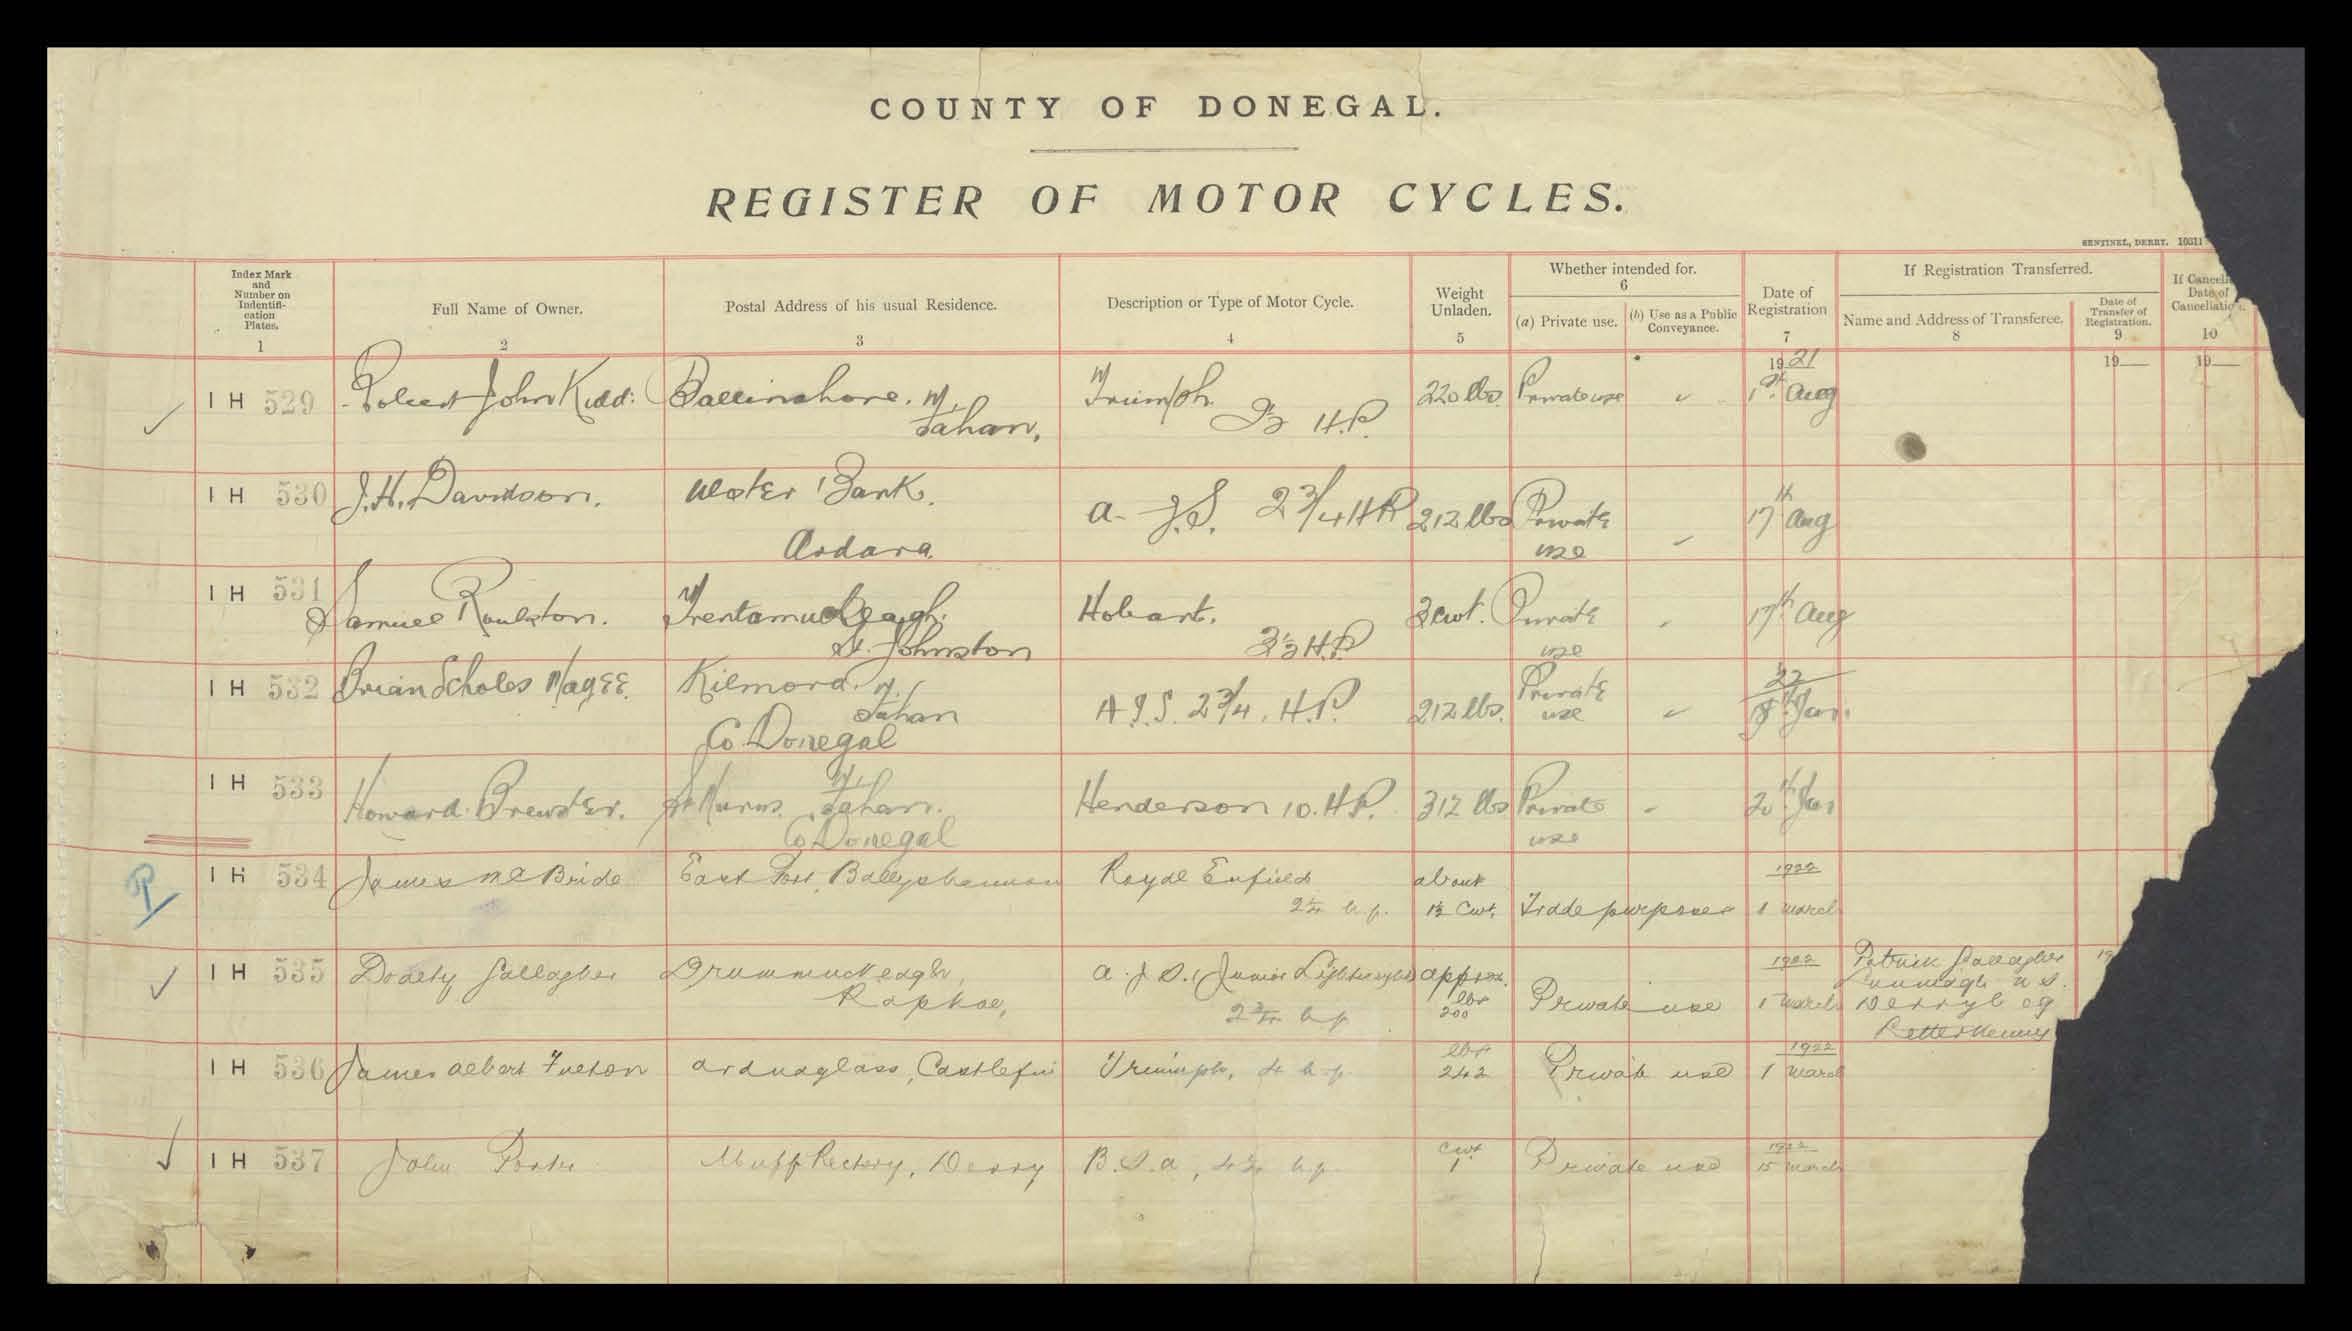 COUNTY OF DONEGAL.
REGISTER OF MOTOR CYCLES.
SENTINEL, DERRY. 10311
Index Mark and Number on Indentifi-cation Plates. 1
Full Name of Owner. 2
Postal Address of his usual Residence. 3
Description or Type of Motor Cycle. 4
Weight Unladen. 5
Whether intended for. 6
(a) Private use.
(b) Use as a Public Conveyance.
Date of Registration 7
If Registration Transferred.
Name and Address of Transferee. 8
Date of Transfer of Registration. 9
Date of Cancellation. 10
1921 19 19
IH 529 Robert John Kidd. Fahan, Triumph H.P. 220 lbs. Private use Aug
IH 530 J.H. Davidson. Ulster Bank. Ardara. A. J.S. 2 3/4 HP 212 lbs Private use 17th Aug
IH 531 Samuel Roulston. St. Johnston Hobart. H.P. Private use 17th Aug
IH 532 Brian Scholes Magee. Fahan Co Donegal A.J.S. 2 3/4. H.P. 212 lbs. Private use 22 Jan.
IH 533 Howard Brewster. Fahan. Co Donegal Henderson 10. H.P. 312 lbs Private use 20th Jan
IH 534 James McBride East Port, Ballyshannon Royal Enfield 2 1/4 h.p. about 1½ Cwt. Trade purposes 1922 1 March
IH 535 Gallagher Raphoe, A.J.S. (Junior Lightweight) 2 3/4 h.p. approx. lbs 200 Private use 1922 1 March Patrick Gallagher N.S. Letterkenny
IH 536 James Albert Fulton Castlefin Triumph, 4 h.p. lbs 242 Private use 1922 1 March
IH 537 John Porter Muff Rectory, Derry B.S.A, 4¼ h.p. Cwt 1 Private use 1922 15 March